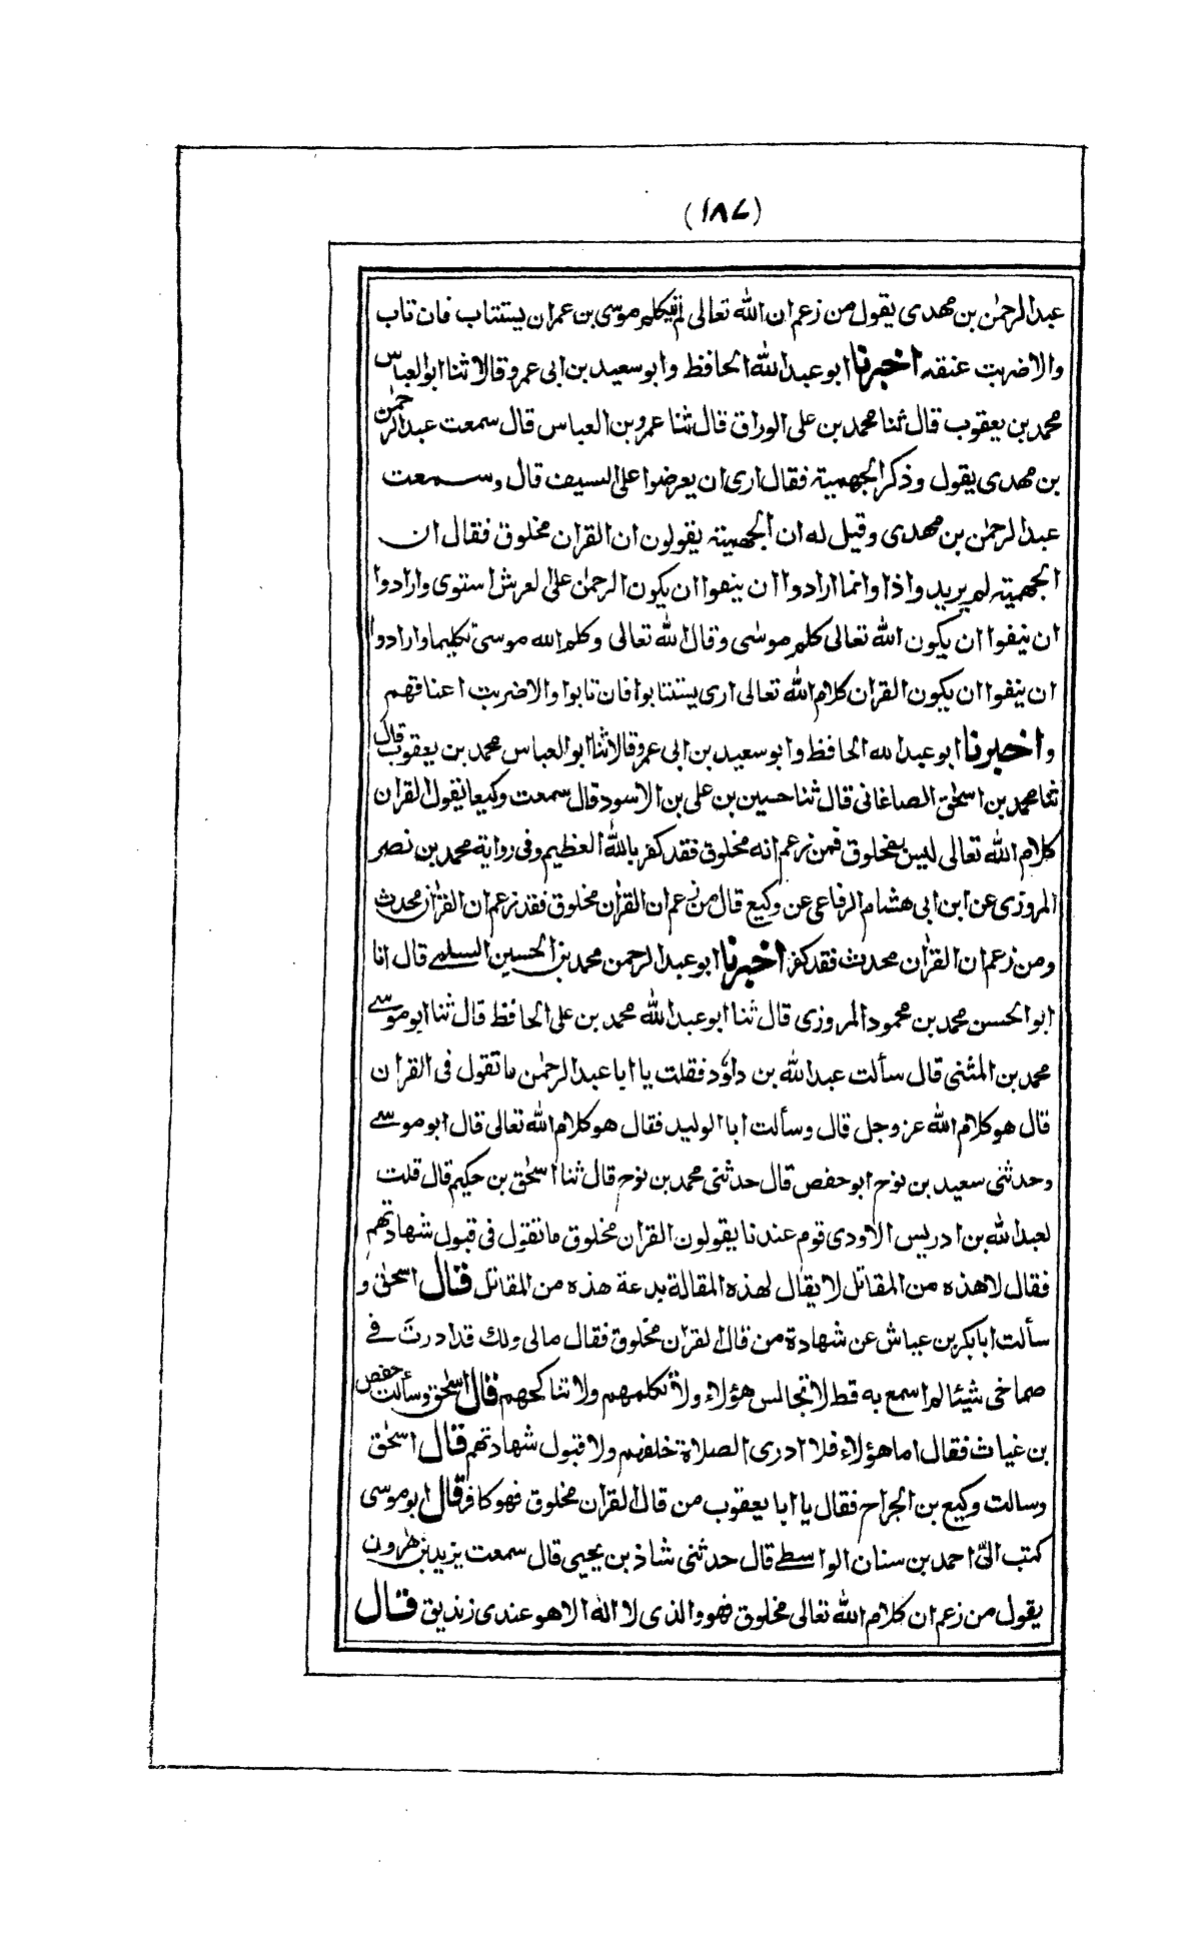 (١٨٧)
عبد الرحمٰن بن مهدى يقول من زعم ان الله تعالى لم يكلم موسى بن عمران يستتاب فان تاب
والا ضربت عنقه اخبرنا ابو عبد الله الحافظ وابو سعيد بن ابى عمرو قالا ثنا ابو العباس
محمد بن يعقوب قال ثنا محمد بن على الوراق قال ثنا عمرو بن العباس قال سمعت عبد الرحمٰن
بن مهدى يقول وذكر الجهمية فقال ارى ان يعرضوا على السيف قال وسمعت
عبد الرحمٰن بن مهدى وقيل له ان الجهمية يقولون ان القران مخلوق فقال ان
الجهمية لم يريدوا ذا وانما ارادوا ان ينفوا ان يكون الرحمٰن على العرش استوى وارادوا
ان ينفوا ان يكون الله تعالى كلم موسٰى وقال الله تعالى وكلم الله موسىٰ تكليما وارادوا
ان ينفوا ان يكون القران كلام الله تعالى ارى يستتابوا فان تابوا والا ضربت اعناقهم
واخبرنا ابو عبد الله الحافظ وابو سعيد بن ابى عمرو قالا ثنا ابو العباس محمد بن يعقوب قال
ثنا محمد بن اسحٰق الصاغانى قال ثنا حسين بن على بن الاسود قال سمعت وكيعا يقول القران
كلام الله تعالى ليس بمخلوق فمن زعم انه مخلوق فقد كفر بالله العظيم وفى رواية محمد بن نصر
المروزى عن ابن ابى هشام الرفاعى عن وكيع قال من زعم ان القرٰان مخلوق فقد زعم ان القرٰان محدث
ومن زعم ان القرٰان محدث فقد كفر اخبرنا ابو عبد الرحمن محمد بن الحسين السلمے قال انا
ابو الحسن محمد بن محمود المروزى قال ثنا ابو عبد الله محمد بن على الحافظ قال ثنا ابو موسے
محمد بن المثنى قال سألت عبد الله بن داوٗد فقلت يا ابا عبد الرحمٰن ما تقول فى القران
قال هو كلام الله عز وجل قال وسألت ابا الوليد فقال هو كلام الله تعالى قال ابو موسے
وحدثنى سعيد بن نوح ابو حفص قال حدثنى محمد بن نوح قال ثنا اسحٰق بن حكيم قال قلت
لعبد الله بن ادريس الاودى قوم عندنا يقولون القران مخلوق ما تقول فى قبول شهادتهم
فقال لا هذه من المقاتل لا يقال لهذه المقالة بدعة هذه من المقاتل قال اسحٰق و
سألت ابا بكر بن عياش عن شهادة من قال القران مخلوق فقال مالى ولك قد ادرت فے
صماخى شيئا لم اسمع به قط لا تجالس هؤلاء ولا تكلمهم ولا تناكحهم قال اسحٰق وسألت حفص
بن غياث فقال اما هؤلاء فلا ادرى الصلاة خلفهم ولا قبول شهادتهم قال اسحٰق
وسالت وكيع بن الجراح فقال يا ابا يعقوب من قال القران مخلوق فهو كافر قال ابو موسى
كتب الىّ احمد بن سنان الواسطے قال حدثنى شاذ بن يحيى قال سمعت يزيد بن هٰرون
يقول من زعم ان كلام الله تعالى مخلوق فهو والذى لا اله الا هو عندى زنديق قال